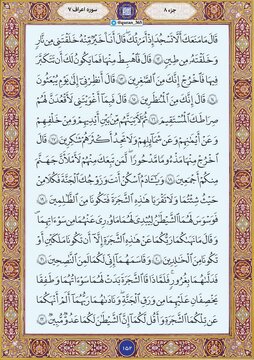 جزء ۸
@quran_365
سوره اعراف ۷
قَالَ مَا مَنَعَكَ أَلَّا تَسْجُدَ إِذْ أَمَرْتُكَ قَالَ أَنَا خَيْرٌ مِنْهُ خَلَقْتَنِي مِنْ نَارٍ
وَخَلَقْتَهُ مِنْ طِينٍ ﴿۱۲﴾ قَالَ فَاهْبِطْ مِنْهَا فَمَا يَكُونُ لَكَ أَنْ تَتَكَبَّرَ
فِيهَا فَاخْرُجْ إِنَّكَ مِنَ الصَّٰغِرِينَ ﴿۱۳﴾ قَالَ أَنْظِرْنِي إِلَىٰ يَوْمِ يُبْعَثُونَ
﴿۱۴﴾ قَالَ إِنَّكَ مِنَ الْمُنْظَرِينَ ﴿۱۵﴾ قَالَ فَبِمَا أَغْوَيْتَنِي لَأَقْعُدَنَّ لَهُمْ
صِرَٰطَكَ الْمُسْتَقِيمَ ﴿۱۶﴾ ثُمَّ لَءَاتِيَنَّهُمْ مِنْ بَيْنِ أَيْدِيهِمْ وَمِنْ خَلْفِهِمْ
وَعَنْ أَيْمَٰنِهِمْ وَعَنْ شَمَائِلِهِمْ وَلَا تَجِدُ أَكْثَرَهُمْ شَٰكِرِينَ ﴿۱۷﴾ قَالَ
اخْرُجْ مِنْهَا مَذْءُومًا مَدْحُورًا لَمَنْ تَبِعَكَ مِنْهُمْ لَأَمْلَأَنَّ جَهَنَّمَ
مِنْكُمْ أَجْمَعِينَ ﴿۱۸﴾ وَيَٰءَادَمُ اسْكُنْ أَنْتَ وَزَوْجُكَ الْجَنَّةَ فَكُلَا مِنْ
حَيْثُ شِئْتُمَا وَلَا تَقْرَبَا هَٰذِهِ الشَّجَرَةَ فَتَكُونَا مِنَ الظَّٰلِمِينَ ﴿۱۹﴾
فَوَسْوَسَ لَهُمَا الشَّيْطَٰنُ لِيُبْدِيَ لَهُمَا مَا وُورِيَ عَنْهُمَا مِنْ سَوْءَٰتِهِمَا
وَقَالَ مَا نَهَىٰكُمَا رَبُّكُمَا عَنْ هَٰذِهِ الشَّجَرَةِ إِلَّا أَنْ تَكُونَا مَلَكَيْنِ أَوْ
تَكُونَا مِنَ الْخَٰلِدِينَ ﴿۲۰﴾ وَقَاسَمَهُمَا إِنِّي لَكُمَا لَمِنَ النَّٰصِحِينَ ﴿۲۱﴾
فَدَلَّىٰهُمَا بِغُرُورٍ فَلَمَّا ذَاقَا الشَّجَرَةَ بَدَتْ لَهُمَا سَوْءَٰتُهُمَا وَطَفِقَا
يَخْصِفَانِ عَلَيْهِمَا مِنْ وَرَقِ الْجَنَّةِ وَنَادَىٰهُمَا رَبُّهُمَا أَلَمْ أَنْهَكُمَا
عَنْ تِلْكُمَا الشَّجَرَةِ وَأَقُلْ لَكُمَا إِنَّ الشَّيْطَٰنَ لَكُمَا عَدُوٌّ مُبِينٌ ﴿۲۲﴾
۱۵۲